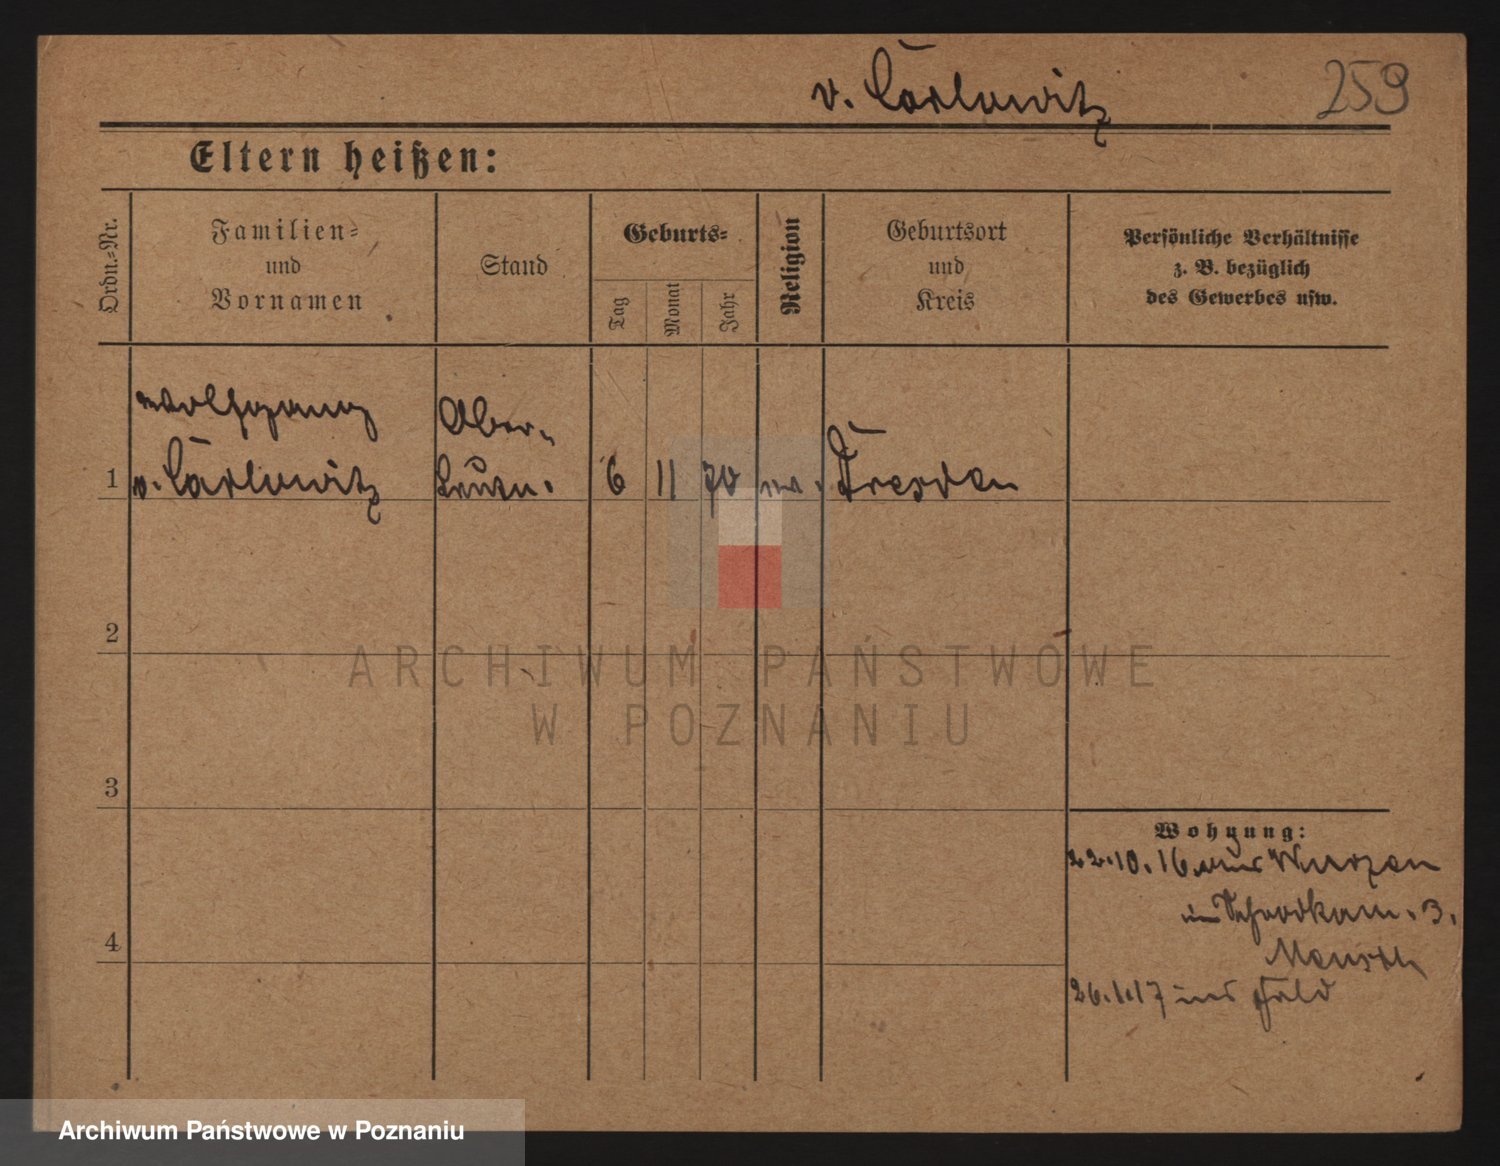 v. Carlowitz
259
Eltern heißen:
Ordn.-Nr.
Familien-
und
Vornamen
Stand
Geburts-
Tag
Monat
Jahr
Religion
Geburtsort
und
Kreis
Persönliche Verhältnisse
z. B. bezüglich
des Gewerbes usw.
Wolfgang
v. Carlowitz
Ober-
1
6
11
70
Dresden
2
ARCHIWUM PAŃSTWOWE
W POZNANIU
3
Wohnung:
22.10.16 aus Wurzen
3.
4
26.1.17 ins Feld
Archiwum Państwowe w Poznaniu